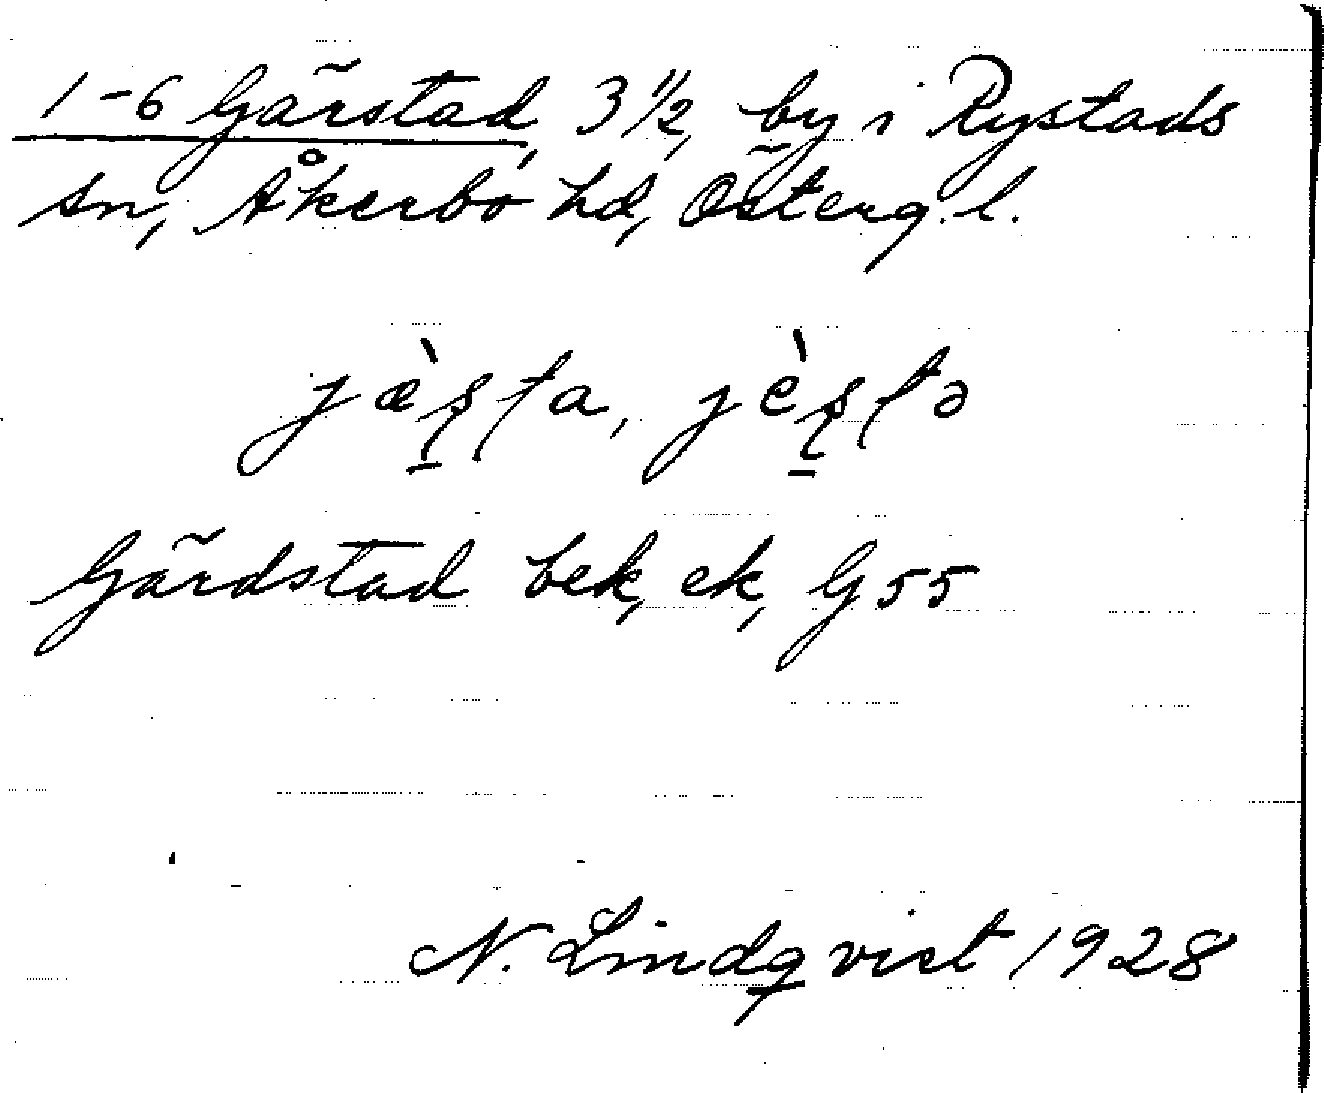 1-6 Gärstad, 3 1/2, by i Rystads
sn, Åkerbo hd, Österg. l.
jæ̀ʂta, jèʂtə
Gärdstad bek, ek, G 55
N. Lindqvist 1928